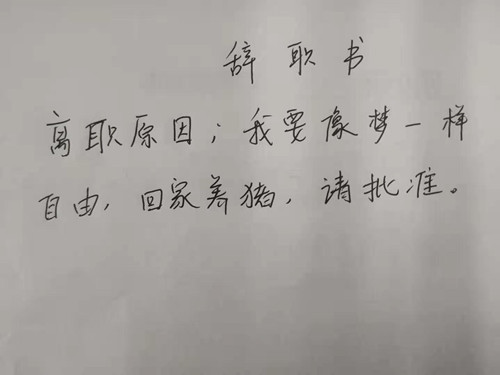 辞职书
离职原因；我要像梦一样
自由，回家养猪，请批准。